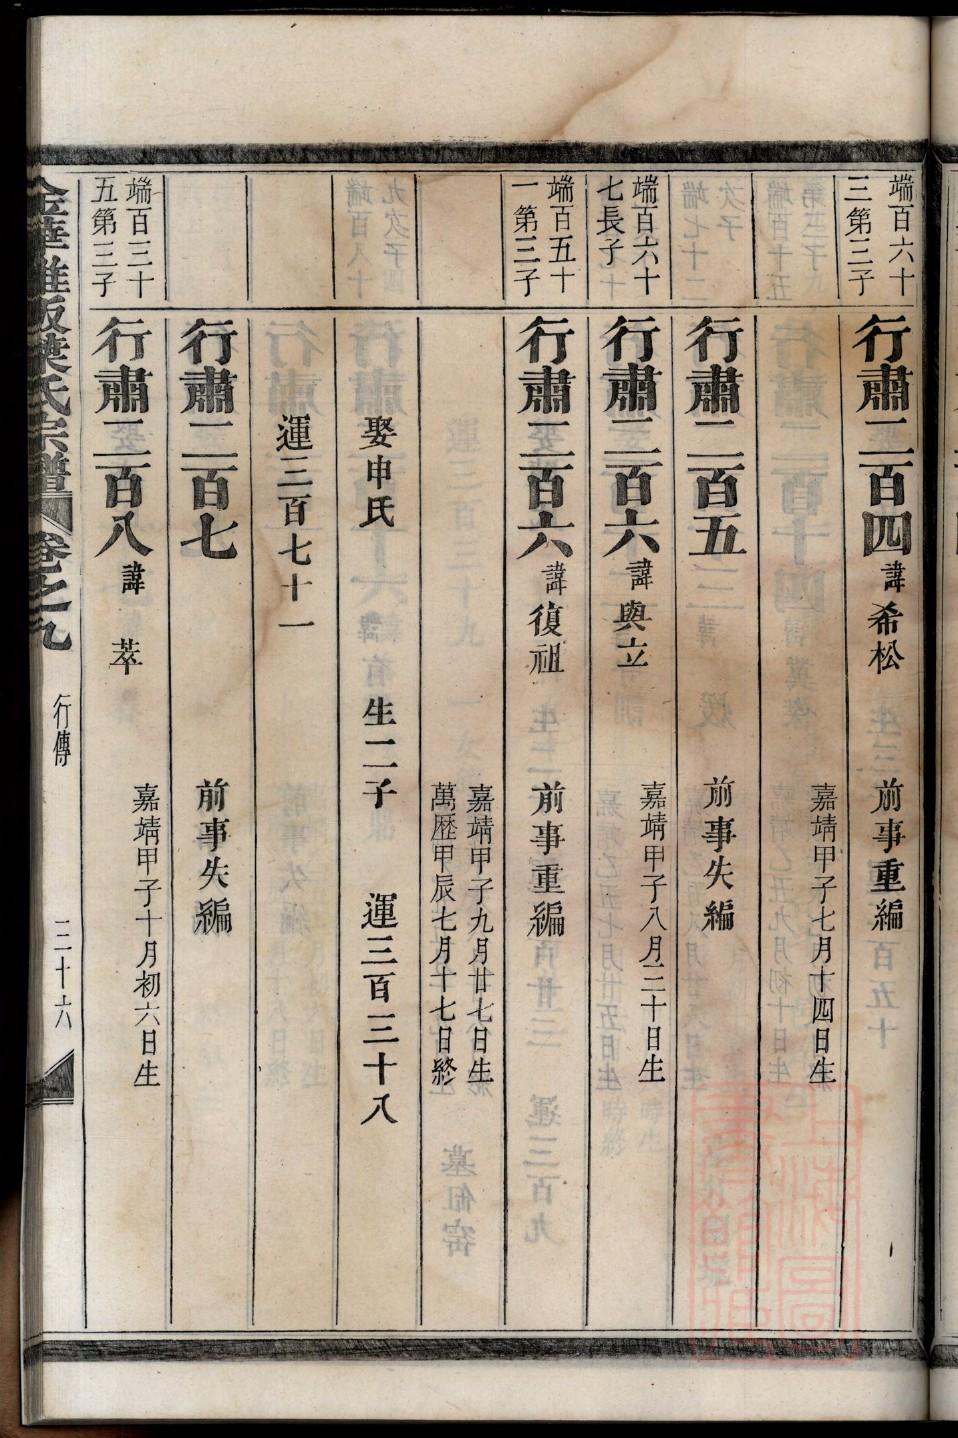 端百六十
三第三子
行肅二百四 諱希松 前事重編
嘉靖甲子七月十四日生
行肅二百五 前事失編
端百六十
七長子
行肅二百六 諱與立
嘉靖甲子八月三十日生
端百五十
一第三子
行肅二百六 諱復祖 前事重編
嘉靖甲子九月廿七日生
萬歷甲辰七月十七日終
娶申氏 生二子 運三百三十八
運三百七十一
行肅二百七 前事失編
端百三十
五第三子
行肅二百八 諱萃
嘉靖甲子十月初六日生
葉氏宗譜 卷之九 行傳 三十六